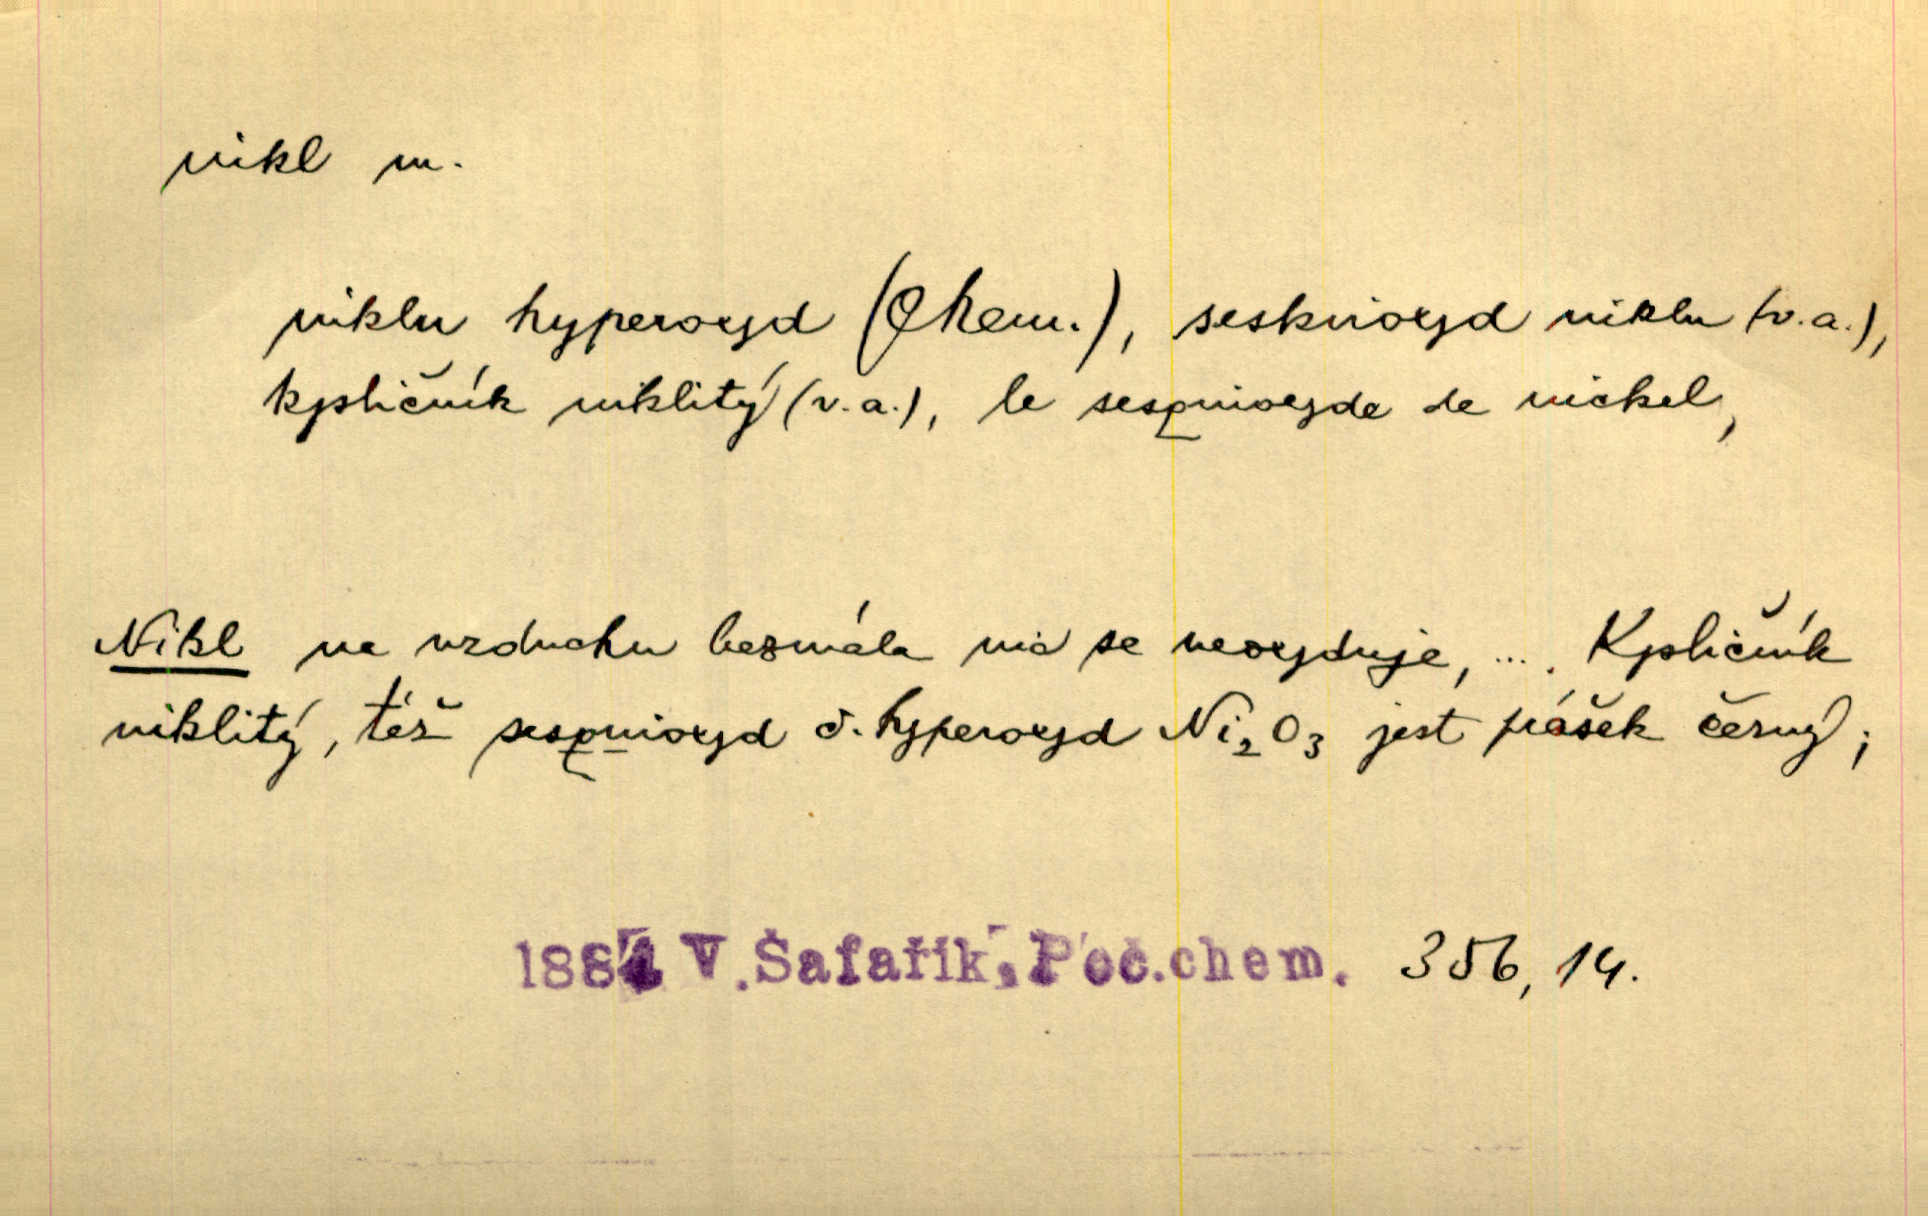 nikl m.
niklu hyperoxyd (Chem.), seskvioxyd niklu (v.a.),
kysličník niklitý (v.a.), le sesquioxyde de nickel,
Nikl na vzduchu bezmála nic se neoxyduje, ... . Kysličník
niklitý, též sesquioxyd č. hyperoxyd Ni₂O₃ jest prášek černý;
V. Šafařík, Poč.chem. 356, 14.